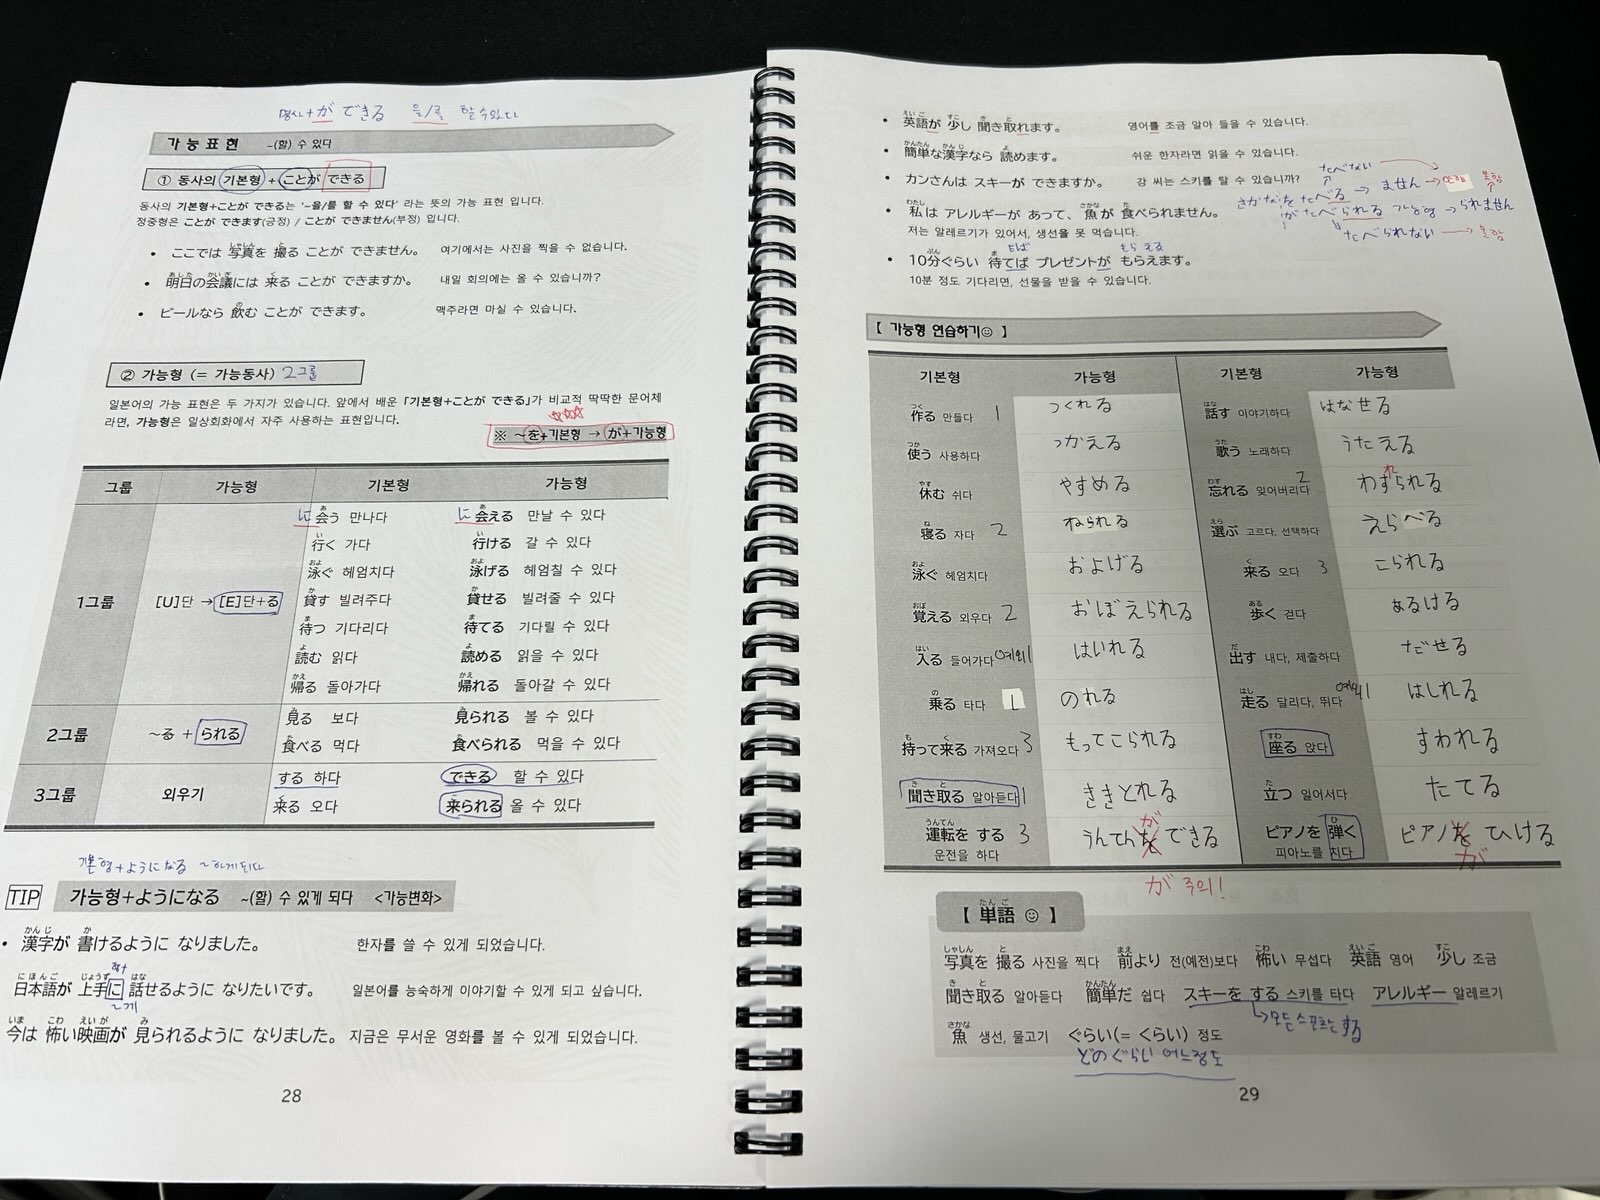 명사+が できる 을/를 할 수 있다
가능표현 ~(할) 수 있다
① 동사의 기본형 + ことが できる
동사의 기본형+ことが できる는 '~을/를 할 수 있다' 라는 뜻의 가능 표현 입니다.
정중형은 ことが できます(긍정) / ことが できません(부정) 입니다.
• ここでは 写真を 撮る ことが できません。 여기에서는 사진을 찍을 수 없습니다.
• 明日の会議には 来る ことが できますか。 내일 회의에는 올 수 있습니까?
• ビールなら 飲む ことが できます。 맥주라면 마실 수 있습니다.
② 가능형 (= 가능동사) 2그룹
일본어의 가능 표현은 두 가지가 있습니다. 앞에서 배운 「기본형+ことが できる」가 비교적 딱딱한 문어체
라면, 가능형은 일상회화에서 자주 사용하는 표현입니다.
※ ~を+기본형 → が+가능형
그룹 가능형 기본형 가능형
1그룹 [U]단 → [E]단+る
に 会う 만나다 に 会える 만날 수 있다
行く 가다 行ける 갈 수 있다
泳ぐ 헤엄치다 泳げる 헤엄칠 수 있다
貸す 빌려주다 貸せる 빌려줄 수 있다
待つ 기다리다 待てる 기다릴 수 있다
読む 읽다 読める 읽을 수 있다
帰る 돌아가다 帰れる 돌아갈 수 있다
2그룹 ~る + られる
見る 보다 見られる 볼 수 있다
食べる 먹다 食べられる 먹을 수 있다
3그룹 외우기
する 하다 できる 할 수 있다
来る 오다 来られる 올 수 있다
기본형+ようになる ~하게되다
TIP 가능형+ようになる ~(할) 수 있게 되다 <가능변화>
• 漢字が 書けるように なりました。 한자를 쓸 수 있게 되었습니다.
日本語が 上手に 話せるように なりたいです。 일본어를 능숙하게 이야기할 수 있게 되고 싶습니다.
~게
今は 怖い映画が 見られるように なりました。 지금은 무서운 영화를 볼 수 있게 되었습니다.
28
• 英語が 少し 聞き取れます。 영어를 조금 알아 들을 수 있습니다.
• 簡単な漢字なら 読めます。 쉬운 한자라면 읽을 수 있습니다.
• カンさんは スキーが できますか。 강 씨는 스키를 탈 수 있습니까?
たべない
さかなを たべる → ません → 못함
が たべられる 가능형 → られません
たべられない → 못함
• 私は アレルギーが あって、魚が 食べられません。
저는 알레르기가 있어서, 생선을 못 먹습니다.
• 10分ぐらい 待てば プレゼントが もらえます。
10분 정도 기다리면, 선물을 받을 수 있습니다.
【 가능형 연습하기☺ 】
기본형 가능형 기본형 가능형
作る 만들다 1 つくれる 話す 이야기하다 はなせる
使う 사용하다 つかえる 歌う 노래하다 うたえる
休む 쉬다 やすめる 忘れる 잊어버리다 2 わすれられる
寝る 자다 2 ねられる 選ぶ 고르다, 선택하다 えらべる
泳ぐ 헤엄치다 およげる 来る 오다 3 こられる
覚える 외우다 2 おぼえられる 歩く 걷다 あるける
入る 들어가다 예외1 はいれる 出す 내다, 제출하다 だせる
乗る 타다 1 のれる 走る 달리다, 뛰다 예외1 はしれる
持って来る 가져오다 3 もってこられる 座る 앉다 すわれる
聞き取る 알아듣다 1 ききとれる 立つ 일어서다 たてる
運転を する 3 うんてんを が できる ピアノを 弾く ピアノを が ひける
운전을 하다 피아노를 치다
が 주의!
【 単語 ☺ 】
写真を 撮る 사진을 찍다 前より 전(예전)보다 怖い 무섭다 英語 영어 少し 조금
聞き取る 알아듣다 簡単だ 쉽다 スキーを する 스키를 타다 アレルギー 알레르기
모든스포츠는 する
魚 생선, 물고기 ぐらい(= くらい) 정도
どのぐらい 어느정도
29